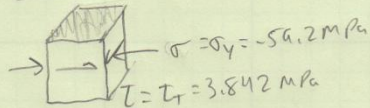 σ = σy = -59.2 MPa
τ = τT = 3.842 MPa